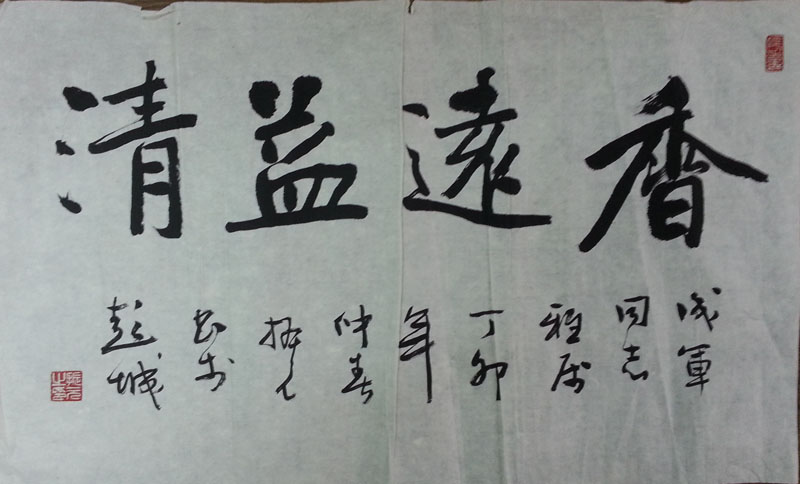 香遠益清
成軍
同志
雅属
丁卯
年
仲春
振元
书於
彭城